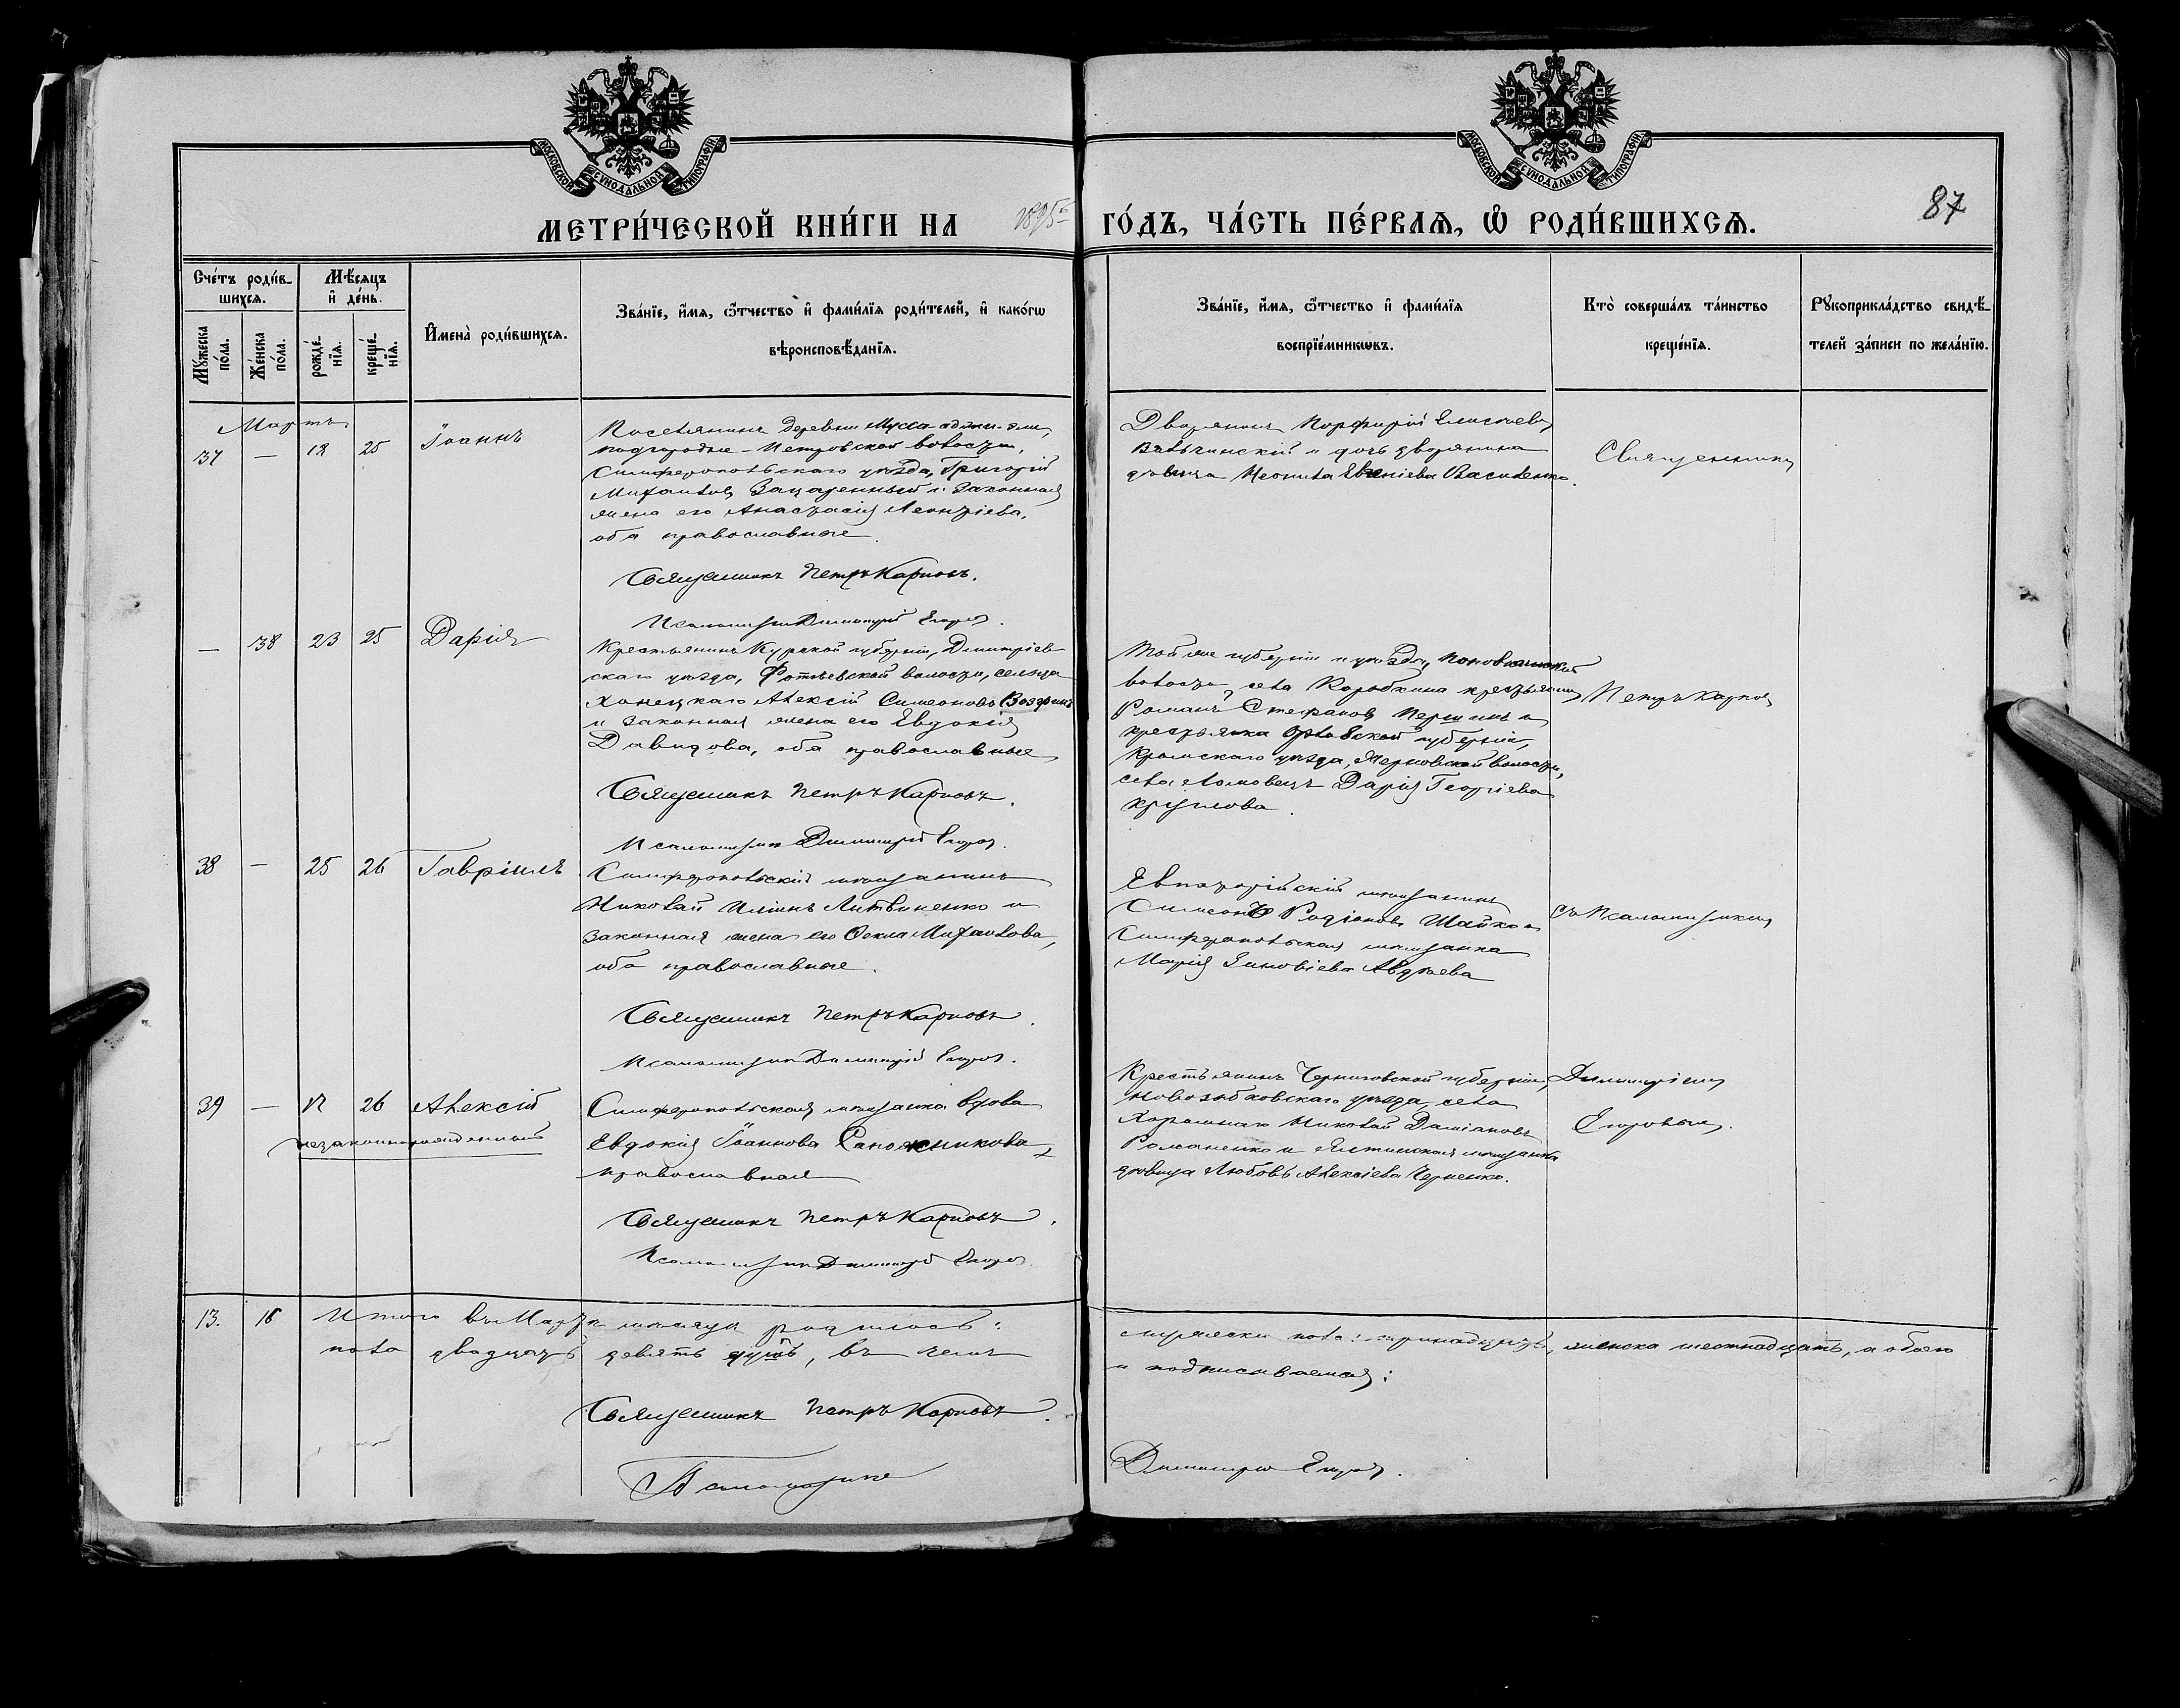 МОСКОВСКОЙ СѴНОДАЛЬНОЙ ТИПОГРАФІИ
МОСКОВСКОЙ СѴНОДАЛЬНОЙ ТИПОГРАФІИ
87
МЕТРИ́ЧЕСКОЙ КНИ́ГИ НА 1895 ГО́ДЪ, ЧА́СТЬ ПЕ́РВАѦ, Ѡ҆ РОДИ́ВШИХСѦ.
Сче́тъ роди́в-
шихсѧ.
Мѣ́сѧцъ
и҆ де́нь.
Мꙋ́жеска
по́ла.
Же́нска
по́ла.
рожде́-
нїѧ.
креще́-
нїѧ.
И҆мена̀ роди́вшихсѧ.
Зва́нїе, и҆́мѧ, ѻ҆́тчество и҆ фами́лїѧ роди́телей, и҆ како́гѡ
вѣроисповѣ́данїѧ.
Зва́нїе, и҆́мѧ, ѻ҆́тчество и҆ фами́лїѧ
воспрїе́мникѡвъ.
Кто̀ соверша́лъ та́инство
креще́нїѧ.
Рꙋкоприкла́дство свидѣ́-
телей за́писи по жела́нїю.
Мартъ
37 — 12 25 Іоаннъ
Поселянинъ деревни Мусса-аджи-эли,
подгородне-Петровской волости,
Симферопольскаго уѣзда, Григорій
Михаиловъ и законная
жена его Анастасія Леонтіева,
оба православные.
Священникъ Петръ Карповъ.
Псаломщикъ Димитрій Егоровъ.
Дворянинъ Порфирій Елисѣевъ
и дочь дворянина
дѣвица Неонила Евгеніева Василенко.
Священникъ
— 38 23 25 Дарія
Крестьянинъ Курской губерніи, Димитріев-
скаго уѣзда, Фатѣевской волости, сельца
Алексій Симеоновъ
и законная жена его Евдокія
Давидова, оба православные
Священникъ Петръ Карповъ.
Псаломщикъ Димитрій Егоровъ.
Той же губерніи и уѣзда,
волости, села Коробкина крестьянинъ
Романъ Стефановъ Першинъ и
крестьянка Орловской губерніи,
Кромскаго уѣзда, волости,
села Ломовецъ Дарія Георгіева
Круглова.
Петръ Карповъ
38 — 25 26 Гавріилъ
Симферопольскій мѣщанинъ
Николай Иліинъ Литвиненко и
законная жена его Ѳекла Михаилова,
оба православные.
Священникъ Петръ Карповъ.
Псаломщикъ Димитрій Егоровъ.
Евпаторійскій мѣщанинъ
Симеонъ Родіоновъ Шайко и
Симферопольская мѣщанка
Марія Зиновіева Авдѣева
съ Псаломщикомъ
39 — 17 26 Алексій
незаконнорожденный
Симферопольская мѣщанка вдова
Евдокія Іоаннова Сапожникова,
православная
Священникъ Петръ Карповъ.
Псаломщикъ Димитрій Егоровъ.
Крестьянинъ Черниговской губерніи,
Новозыбковскаго уѣзда, села
Николай Даміановъ
Романенко и Ялтинская мѣщанка
дѣвица Любовь Алексіева Черненко.
Димитріемъ
Егоровымъ.
13. 16 Итого въ Мартѣ мѣсяцѣ родилось: мужеска пола: тринадцать, женска шестнадцать, а обоего
пола двадцать девять душъ, въ чемъ и подписываемся:
Священникъ Петръ Карповъ.
Псаломщикъ Димитрій Егоровъ.